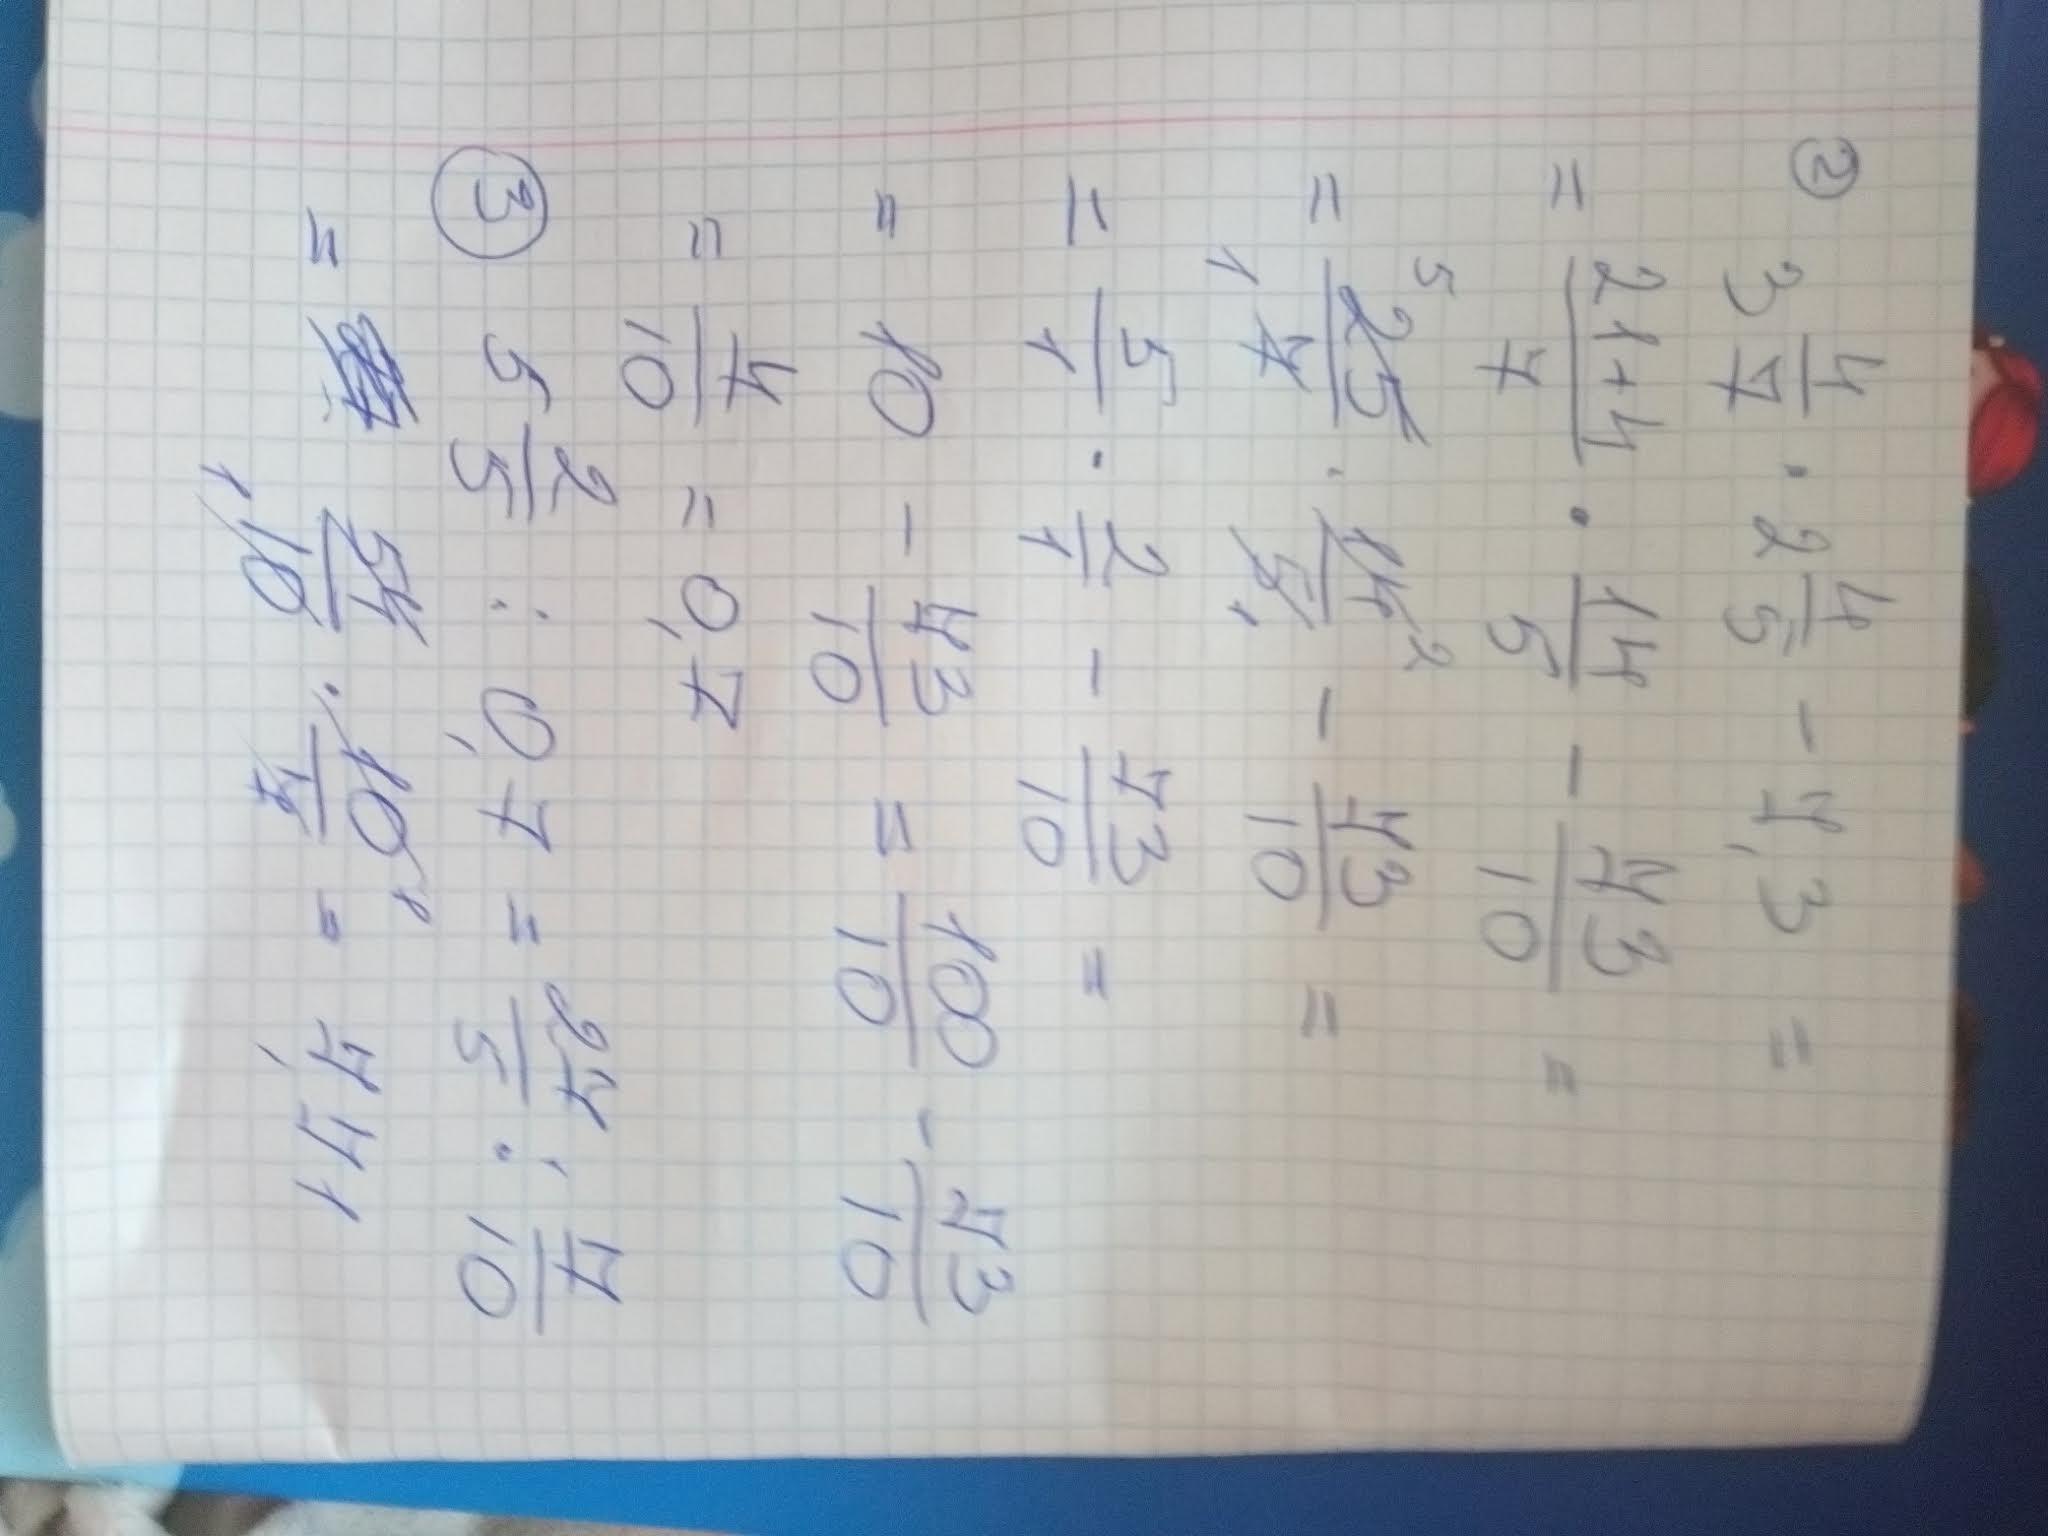 ② 3 4/7 · 2 4/5 - 7,3 =
= 21+4/7 · 14/5 - 73/10 =
= 5 25/7 1 · 14 2/5 1 - 73/10 =
= 5/1 · 2/1 - 73/10 =
= 10 - 73/10 = 100/10 - 73/10
= 7/10 = 0,7
③ 5 2/5 : 0,7 = 27/5 : 7/10
= 54/10 1 · 10 1/7 = 7,71